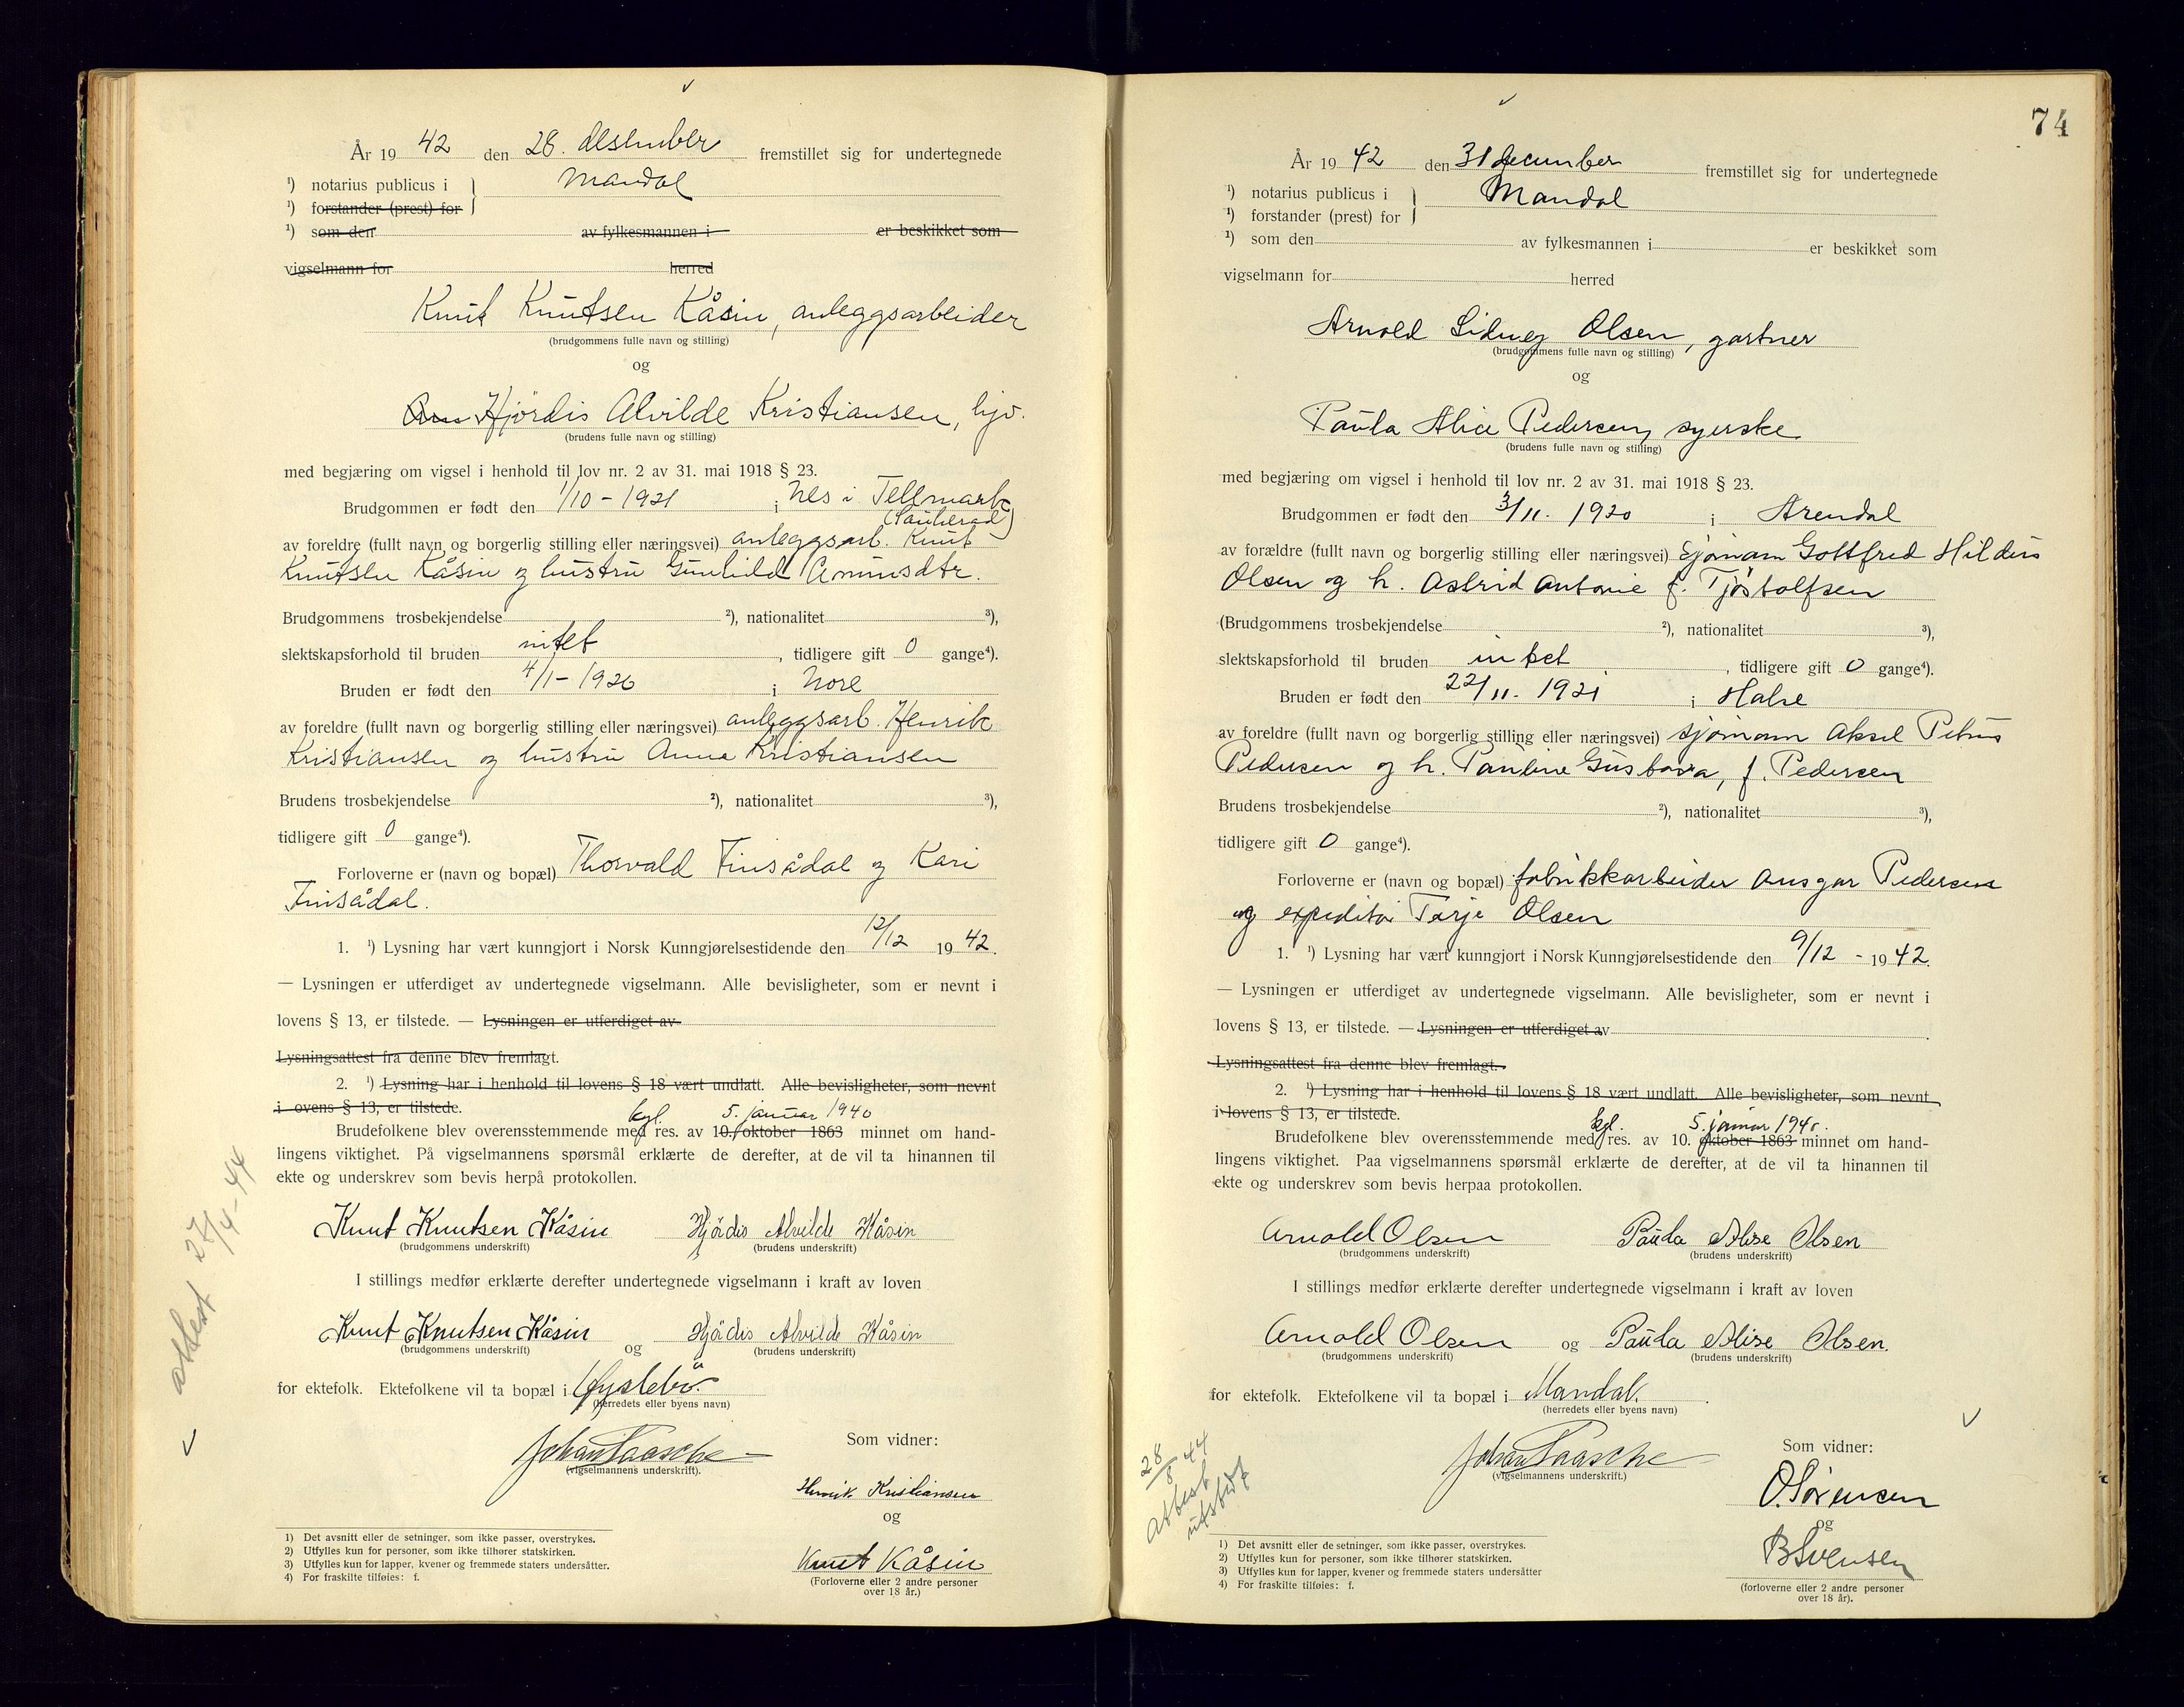 År 19 42 den 28. desember fremstillet sig for undertegnede
¹) notarius publicus i Mandal
¹) forstander (prest) for
¹) som den av fylkesmannen i er beskikket som
vigselmann for herred
Knut Knutsen Kåsin, anleggsarbeider
(brudgommens fulle navn og stilling)
og
Hjördis Alvilde Kristiansen, hjv.
(brudens fulle navn og stilling)
med begjæring om vigsel i henhold til lov nr. 2 av 31. mai 1918 § 23.
Brudgommen er født den 1/10 - 1921 i Nes i Tellmark
(Sauherad)
av foreldre (fullt navn og borgerlig stilling eller næringsvei) anleggsarb. Knut
Knutsen Kåsin og hustru Gunhild
Brudgommens trosbekjendelse ²), nationalitet ³),
slektskapsforhold til bruden intet, tidligere gift 0 gange⁴).
Bruden er født den 4/1 - 1926 i Nore
av foreldre (fullt navn og borgerlig stilling eller næringsvei) anleggsarb. Henrik
Kristiansen og hustru Anna Kristiansen
Brudens trosbekjendelse ²), nationalitet ³),
tidligere gift 0 gange⁴).
Forloverne er (navn og bopæl) Thorvald Finsådal og Kari
Finsådal.
1. ¹) Lysning har vært kunngjort i Norsk Kunngjørelsestidende den 12/12 19 42.
— Lysningen er utferdiget av undertegnede vigselmann. Alle bevisligheter, som er nevnt i
lovens § 13, er tilstede. — Lysningen er utferdiget av
Lysningsattest fra denne blev fremlagt.
2. ¹) Lysning har i henhold til lovens § 18 vært undlatt. Alle bevisligheter, som nevnt
i ovens § 13, er tilstede.
kgl. 5. januar 1940
Brudefolkene blev overensstemmende med res. av 10. oktober 1863 minnet om hand-
lingens viktighet. På vigselmannens spørsmål erklærte de derefter, at de vil ta hinannen til
ekte og underskrev som bevis herpå protokollen.
Knut Knutsen Kåsin Hjördis Alvilde Kåsin
(brudgommens underskrift) (brudens underskrift)
I stillings medfør erklærte derefter undertegnede vigselmann i kraft av loven
Knut Knutsen Kåsin og Hjördis Alvilde Kåsin
(brudgommens underskrift) (brudens underskrift)
for ektefolk. Ektefolkene vil ta bopæl i Øyslebö.
(herredets eller byens navn)
Johan Paasche
(vigselmannens underskrift).
Som vidner:
Henrik Kristiansen
og
Knut Kåsin
(Forloverne eller 2 andre personer
over 18 år.)
attest 27/4-44
1) Det avsnitt eller de setninger, som ikke passer, overstrykes.
2) Utfylles kun for personer, som ikke tilhører statskirken.
3) Utfylles kun for lapper, kvener og fremmede staters undersåtter.
4) For fraskilte tilføies: f.
74
År 19 42 den 31 december fremstillet sig for undertegnede
¹) notarius publicus i Mandal
¹) forstander (prest) for
¹) som den av fylkesmannen i er beskikket som
vigselmann for herred
Arnold Sidney Olsen, gartner
(brudgommens fulle navn og stilling)
og
Paula Alice Pedersen, syerske
(brudens fulle navn og stilling)
med begjæring om vigsel i henhold til lov nr. 2 av 31. mai 1918 § 23.
Brudgommen er født den 3/11. 1920 i Arendal
av forældre (fullt navn og borgerlig stilling eller næringsvei) Sjömann Gottfred
Olsen og h. Astrid Antonie f. Tjöstolfsen
(Brudgommens trosbekjendelse ²), nationalitet ³),
slektskapsforhold til bruden intet, tidligere gift 0 gange⁴).
Bruden er født den 22/11. 1921 i Halse
av foreldre (fullt navn og borgerlig stilling eller næringsvei) sjömann Aksel Petrus
Pedersen og h. Pauline Gustava, f. Pedersen
Brudens trosbekjendelse ²), nationalitet ³),
tidligere gift 0 gange⁴).
Forloverne er (navn og bopæl) fabrikkarbeider Ansgar Pedersen
og expeditör Terje Olsen
1. ¹) Lysning har vært kunngjort i Norsk Kunngjørelsestidende den 9/12 - 19 42.
— Lysningen er utferdiget av undertegnede vigselmann. Alle bevisligheter, som er nevnt i
lovens § 13, er tilstede. — Lysningen er utferdiget av
Lysningsattest fra denne blev fremlagt.
2. ¹) Lysning har i henhold til lovens § 18 vært undlatt. Alle bevisligheter, som nevnt
i lovens § 13, er tilstede.
kgl. 5. januar 1940.
Brudefolkene blev overensstemmende med res. av 10. oktober 1863 minnet om hand-
lingens viktighet. Paa vigselmannens spørsmål erklærte de derefter, at de vil ta hinannen til
ekte og underskrev som bevis herpaa protokollen.
Arnold Olsen Paula Alise Olsen
(brudgommens underskrift) (brudens underskrift)
I stillings medfør erklærte derefter undertegnede vigselmann i kraft av loven
Arnold Olsen og Paula Alise Olsen.
(brudgommens underskrift) (brudens underskrift)
for ektefolk. Ektefolkene vil ta bopæl i Mandal.
(herredets eller byens navn)
Johan Paasche
(vigselmannens underskrift.)
Som vidner:
O. Sörensen
og
B Svensen
(forloverne eller 2 andre personer
over 18 år).
28/8 44
attest
utstedt
1) Det avsnitt eller de setninger, som ikke passer, overstrykes.
2) Utfylles kun for personer, som ikke tilhører statskirken.
3) Utfylles kun for lapper, kvener og fremmede staters undersåtter
4) For fraskilte tilføies: f.